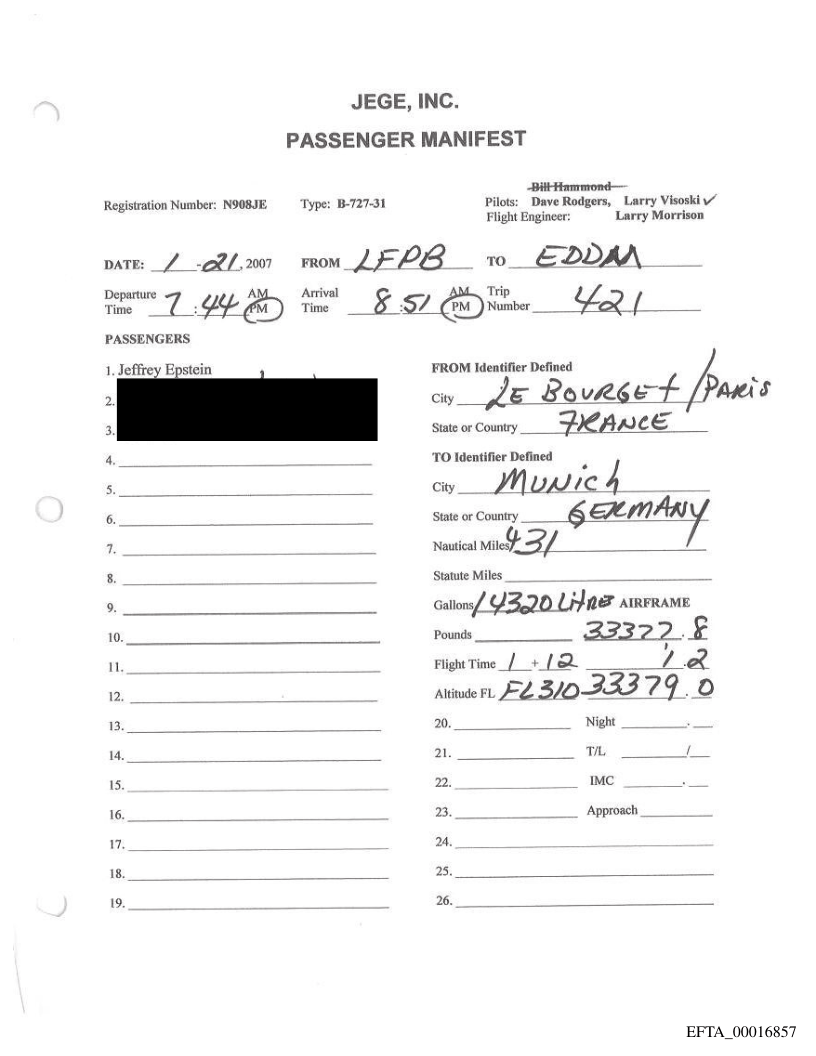 JEGE, INC.
PASSENGER MANIFEST
Bill Hammond
Registration Number: N908JE Type: B-727-31 Pilots: Dave Rodgers, Larry Visoski ✓
Flight Engineer: Larry Morrison
DATE: 1 - 21, 2007 FROM LFPB TO EDDM
Departure Time 7 : 44 AM PM Arrival Time 8 : 51 AM PM Trip Number 421
PASSENGERS
1. Jeffrey Epstein FROM Identifier Defined
2. City LE BOURGET / PARIS
3. State or Country FRANCE
4. TO Identifier Defined
5. City MUNICH
6. State or Country GERMANY
7. Nautical Miles 431
8. Statute Miles
9. Gallons / 4320 LITRES AIRFRAME
10. Pounds 33377.8
11. Flight Time 1 + 12 1.2
12. Altitude FL FL310 33379.0
13. 20. Night .
14. 21. T/L /
15. 22. IMC .
16. 23. Approach
17. 24.
18. 25.
19. 26.
EFTA_00016857